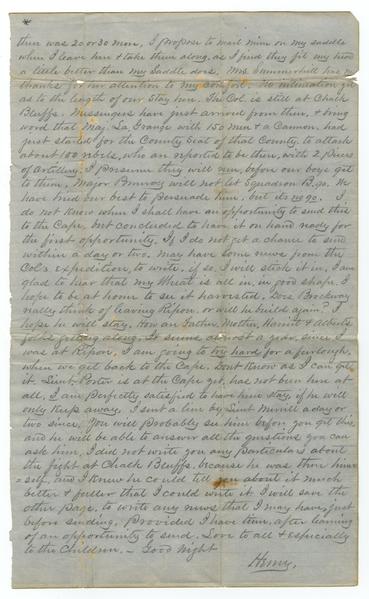 there was 20 or 30 men, I propose to nail mine on my saddle
when I leave here & take them along, as I find they fit my head
a little better than my Saddle does. Mrs. Emmershill has my
thanks for her attention to my comfort. No intimation yet
as to the length of our Stay here. The Col. is still at Chalk
Bluffs. Messengers have just arrived from there, & bring
word that Maj. La Grange with 150 men & a Cannon, had
just started for the County Seat of that County, to attack
about 100 rebels, who are reported to be there, with 2 pieces
of Artillery. I Presume they will run, before our boys get
to them. Major Pomroy will not let Squadron B. go. We
have tried our best to Persuade him, but its no go. I
do not know when I shall have an opportunity to send this
to the Cape, but concluded to have it on hand ready for
the first opportunity. If I do not get a chance to send
within a day or two, may have some news from the
Col's expedition, to write, if so, I will stick it in, I am
glad to hear that my Wheat is all in, in good shape. I
hope to be at home to see it harvested. Does Brockway
really think of leaving Ripon, or will he build again? I
hope he will stay. How are Father, Mother, Harriet & Alberts
folks getting along. It seems almost a year, since I
was at Ripon. I am going to try hard for a furlough,
when we get back to the Cape. Dont Know as I can get
it. Lieut. Porter is at the Cape yet, has not been here at
all, I am Perfectly satisfied to have him stay, if he will
only keep away. I sent a line by Lieut Merrill a day or
two since. You will Probably see him before you get this,
and he will be able to answer all the questions you can
ask him. I did not write you any Particulars about
the fight at Chalk Bluffs, because he was there him=
=self, and I knew he could tell you about it much
better & fuller that I could write it. I will save the
other Page, to write any news that I may have, just
before sending, Provided I have time, after learning
of an opportunity to send. Love to all & especially
to the Children. – Good Night
Henry.